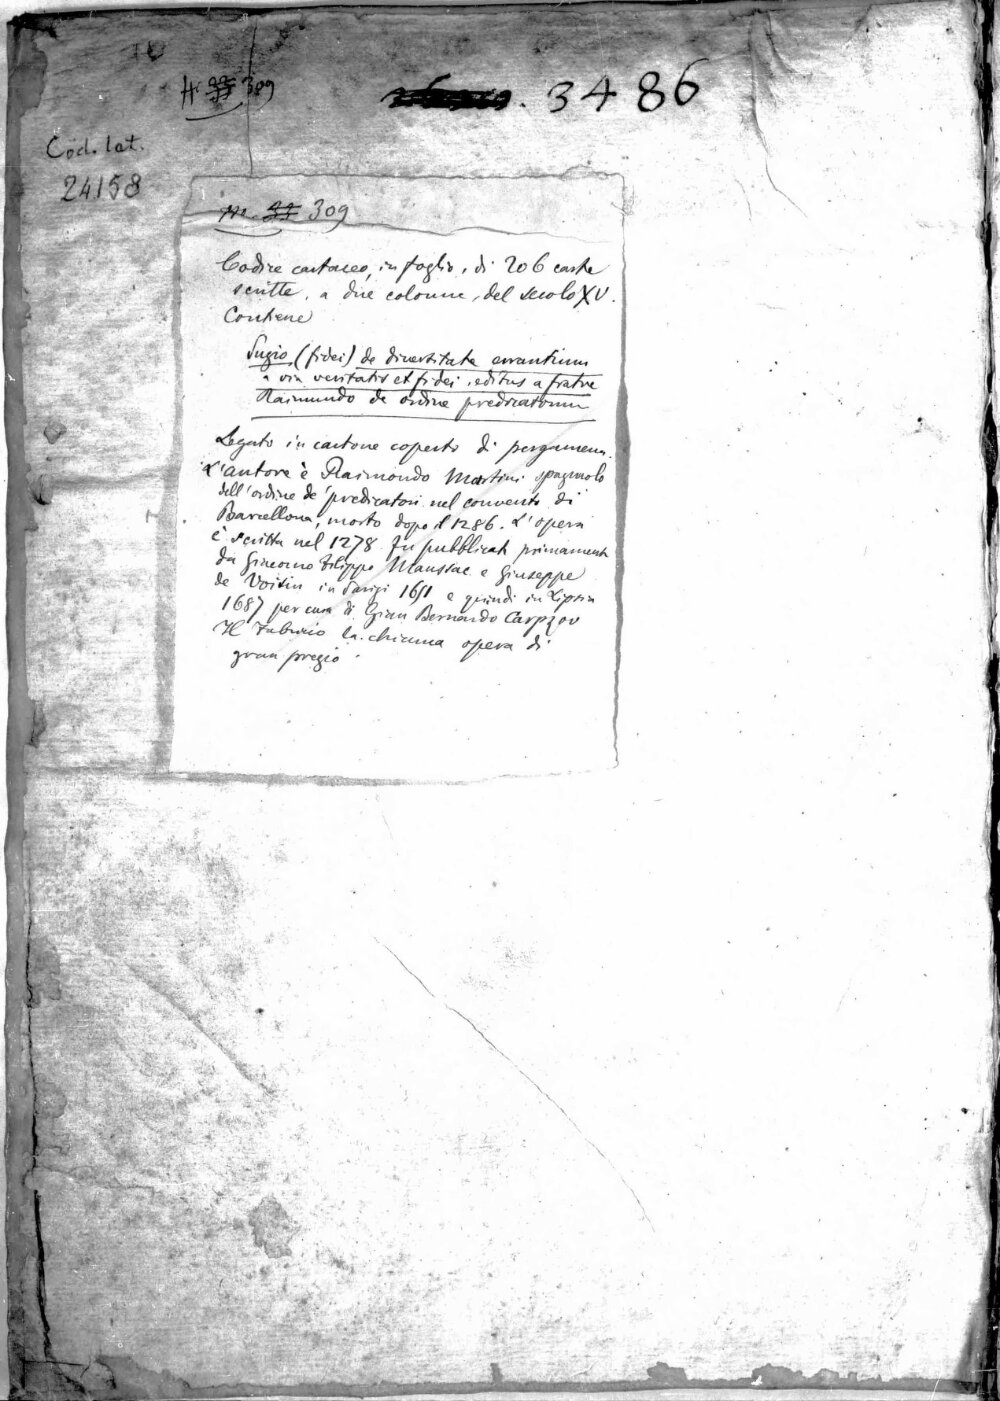 Nr 309
3486
Cod. lat.
24158
Nr. 309
Codice cartaceo, in foglio, di 206 carte
scritte, a due colonne, del secolo XV.
Contiene
Pugio (fidei) de diversitate errantium
a via veritatis et fidei, editus a fratre
Raimundo de ordine predicatorum
Legato in cartone coperto di pergamena.
L'autore è Raimondo Martini spagnolo
dell'ordine de' predicatori nel convento di
Barcellona, morto dopo il 1286. L'opera
è scritta nel 1278 fu pubblicata primamente
da Giacomo Filippo Maussac e Giuseppe
de Voisin in Parigi 1651 e quindi in Lipsia
1687 per cura di Gian Bernardo Carpzov
Il Fabricio la chiama opera di
gran pregio.